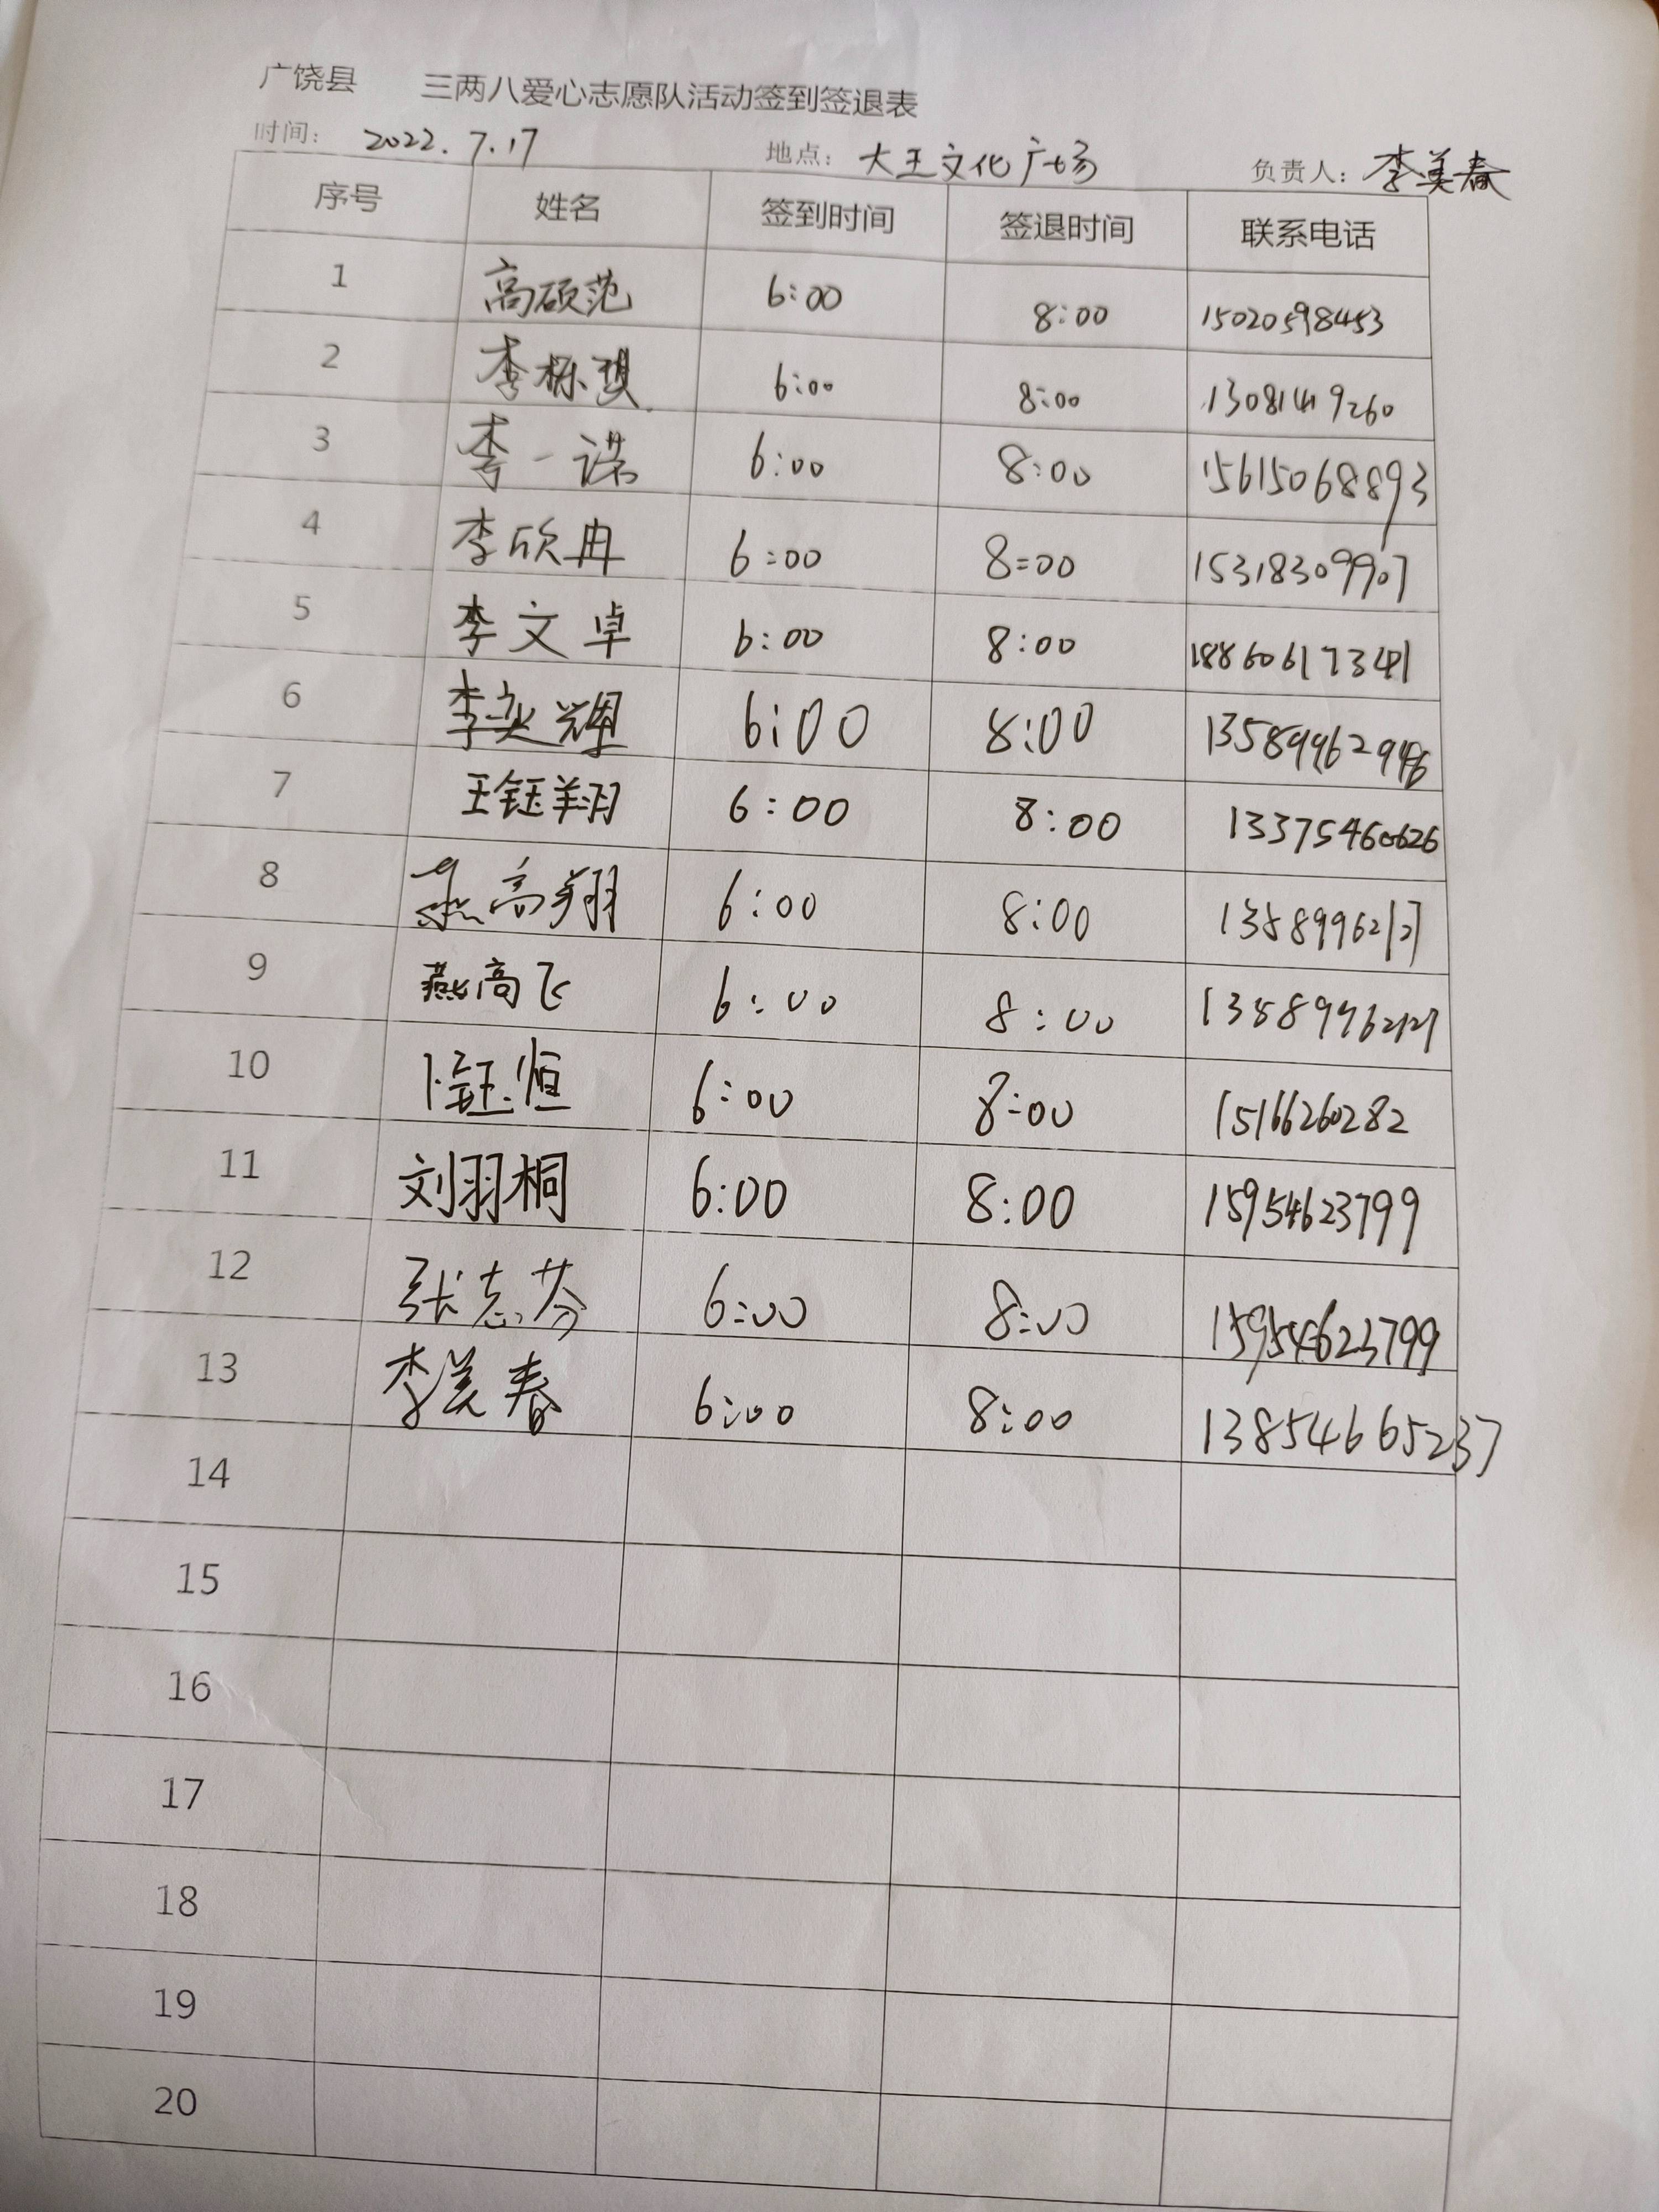 广饶县 三两八爱心志愿队活动签到签退表
时间: 2022.7.17 地点: 大王文化广场 负责人: 李美春
序号 姓名 签到时间 签退时间 联系电话
1 高硕范 6:00 8:00 15020598453
2 李栎琪 6:00 8:00
3 李一诺 6:00 8:00 15615068893
4 李欣冉 6:00 8:00 15318309907
5 李文卓 6:00 8:00
6 李奕辉 6:00 8:00
7 王钰翔 6:00 8:00 13375460626
8 燕高翔 6:00 8:00 13589962127
9 燕高飞 6:00 8:00 13589962127
10 卞钰恒 6:00 8:00 15166260282
11 刘羽桐 6:00 8:00 15954623799
12 张志芬 6:00 8:00 15954623799
13 李美春 6:00 8:00 13854665237
14
15
16
17
18
19
20